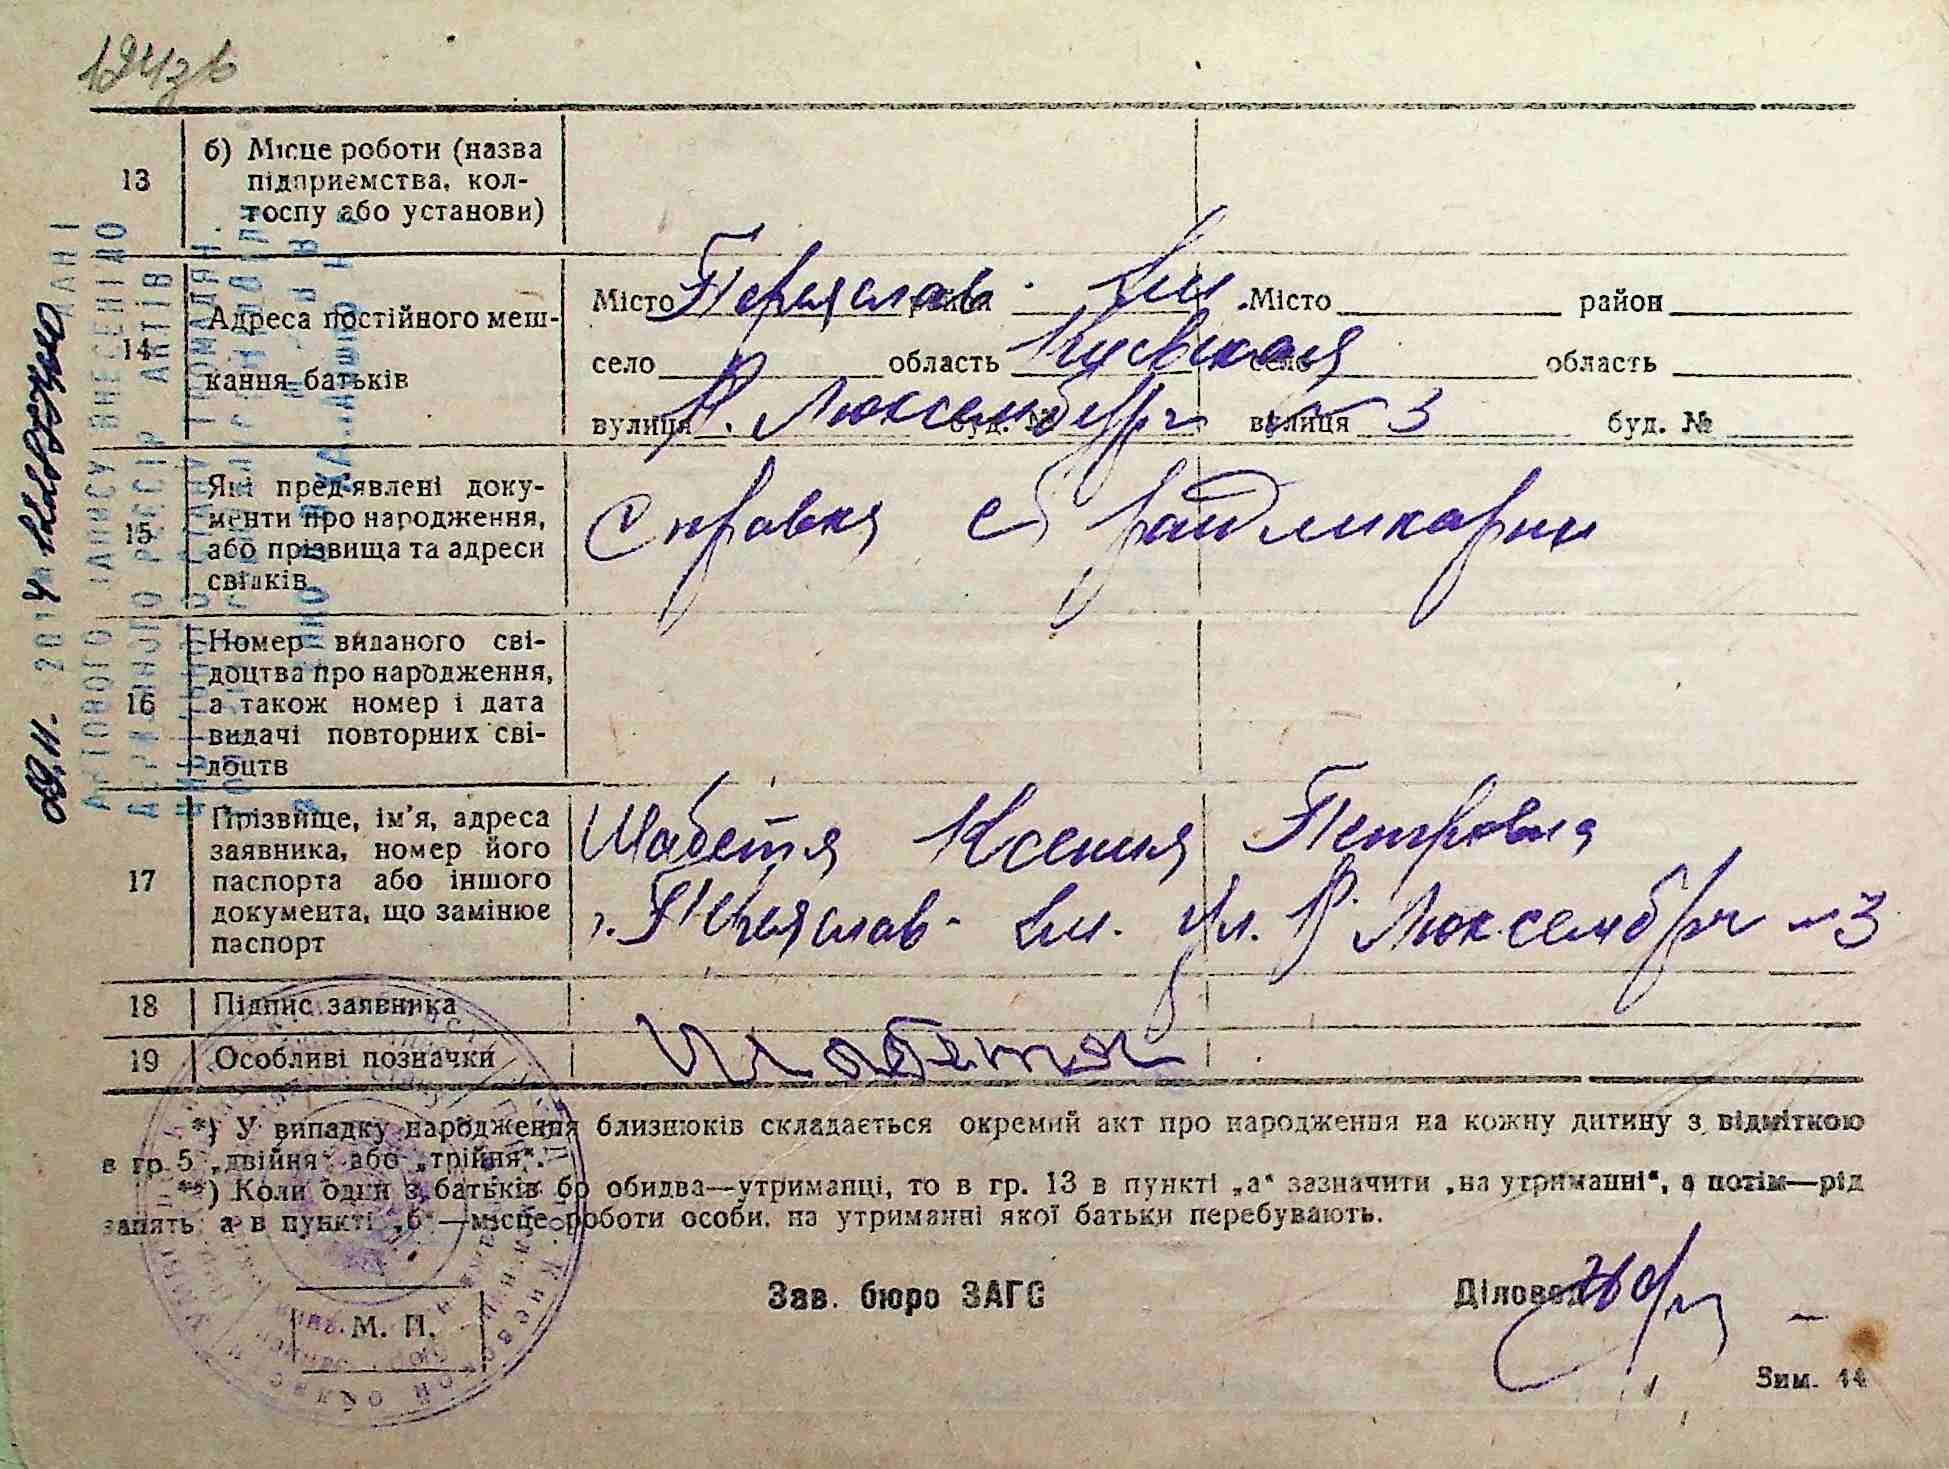 13 б) Місце роботи (назва
підприємства, кол-
госпу або установи)
14 Адреса постійного меш-
кання батьків
Місто Переяслав- Хм. район Місто район
село область Киевская село область
вулиця Р. Люксембург буд. № вулиця 3 буд. №
15 Які пред'явлені доку-
менти про народження,
або прізвища та адреси
свідків
Справка с райликарни
16 Номер виданого сві-
доцтва про народження,
а також номер і дата
видачі повторних сві-
доцтв
17 Прізвище, ім'я, адреса
заявника, номер його
паспорта або іншого
документа, що замінює
паспорт
Шабетя Ксения Петровна
г. Переяслав- Хм. ул. Р. Люксембург 3
18 Підпис заявника
19 Особливі позначки
Шабетя
*) У випадку народження близнюків складається окремий акт про народження на кожну дитину з відміткою
в гр. 5 „двійня" або „трійня".
**) Коли один з батьків бо обидва—утриманці, то в гр. 13 в пункті „а" зазначити „на утриманні", а потім—рід
занять, а в пункті „б"—місце роботи особи, на утриманні якої батьки перебувають.
Зав. бюро ЗАГС Діловод
М. П.
Зим. 14